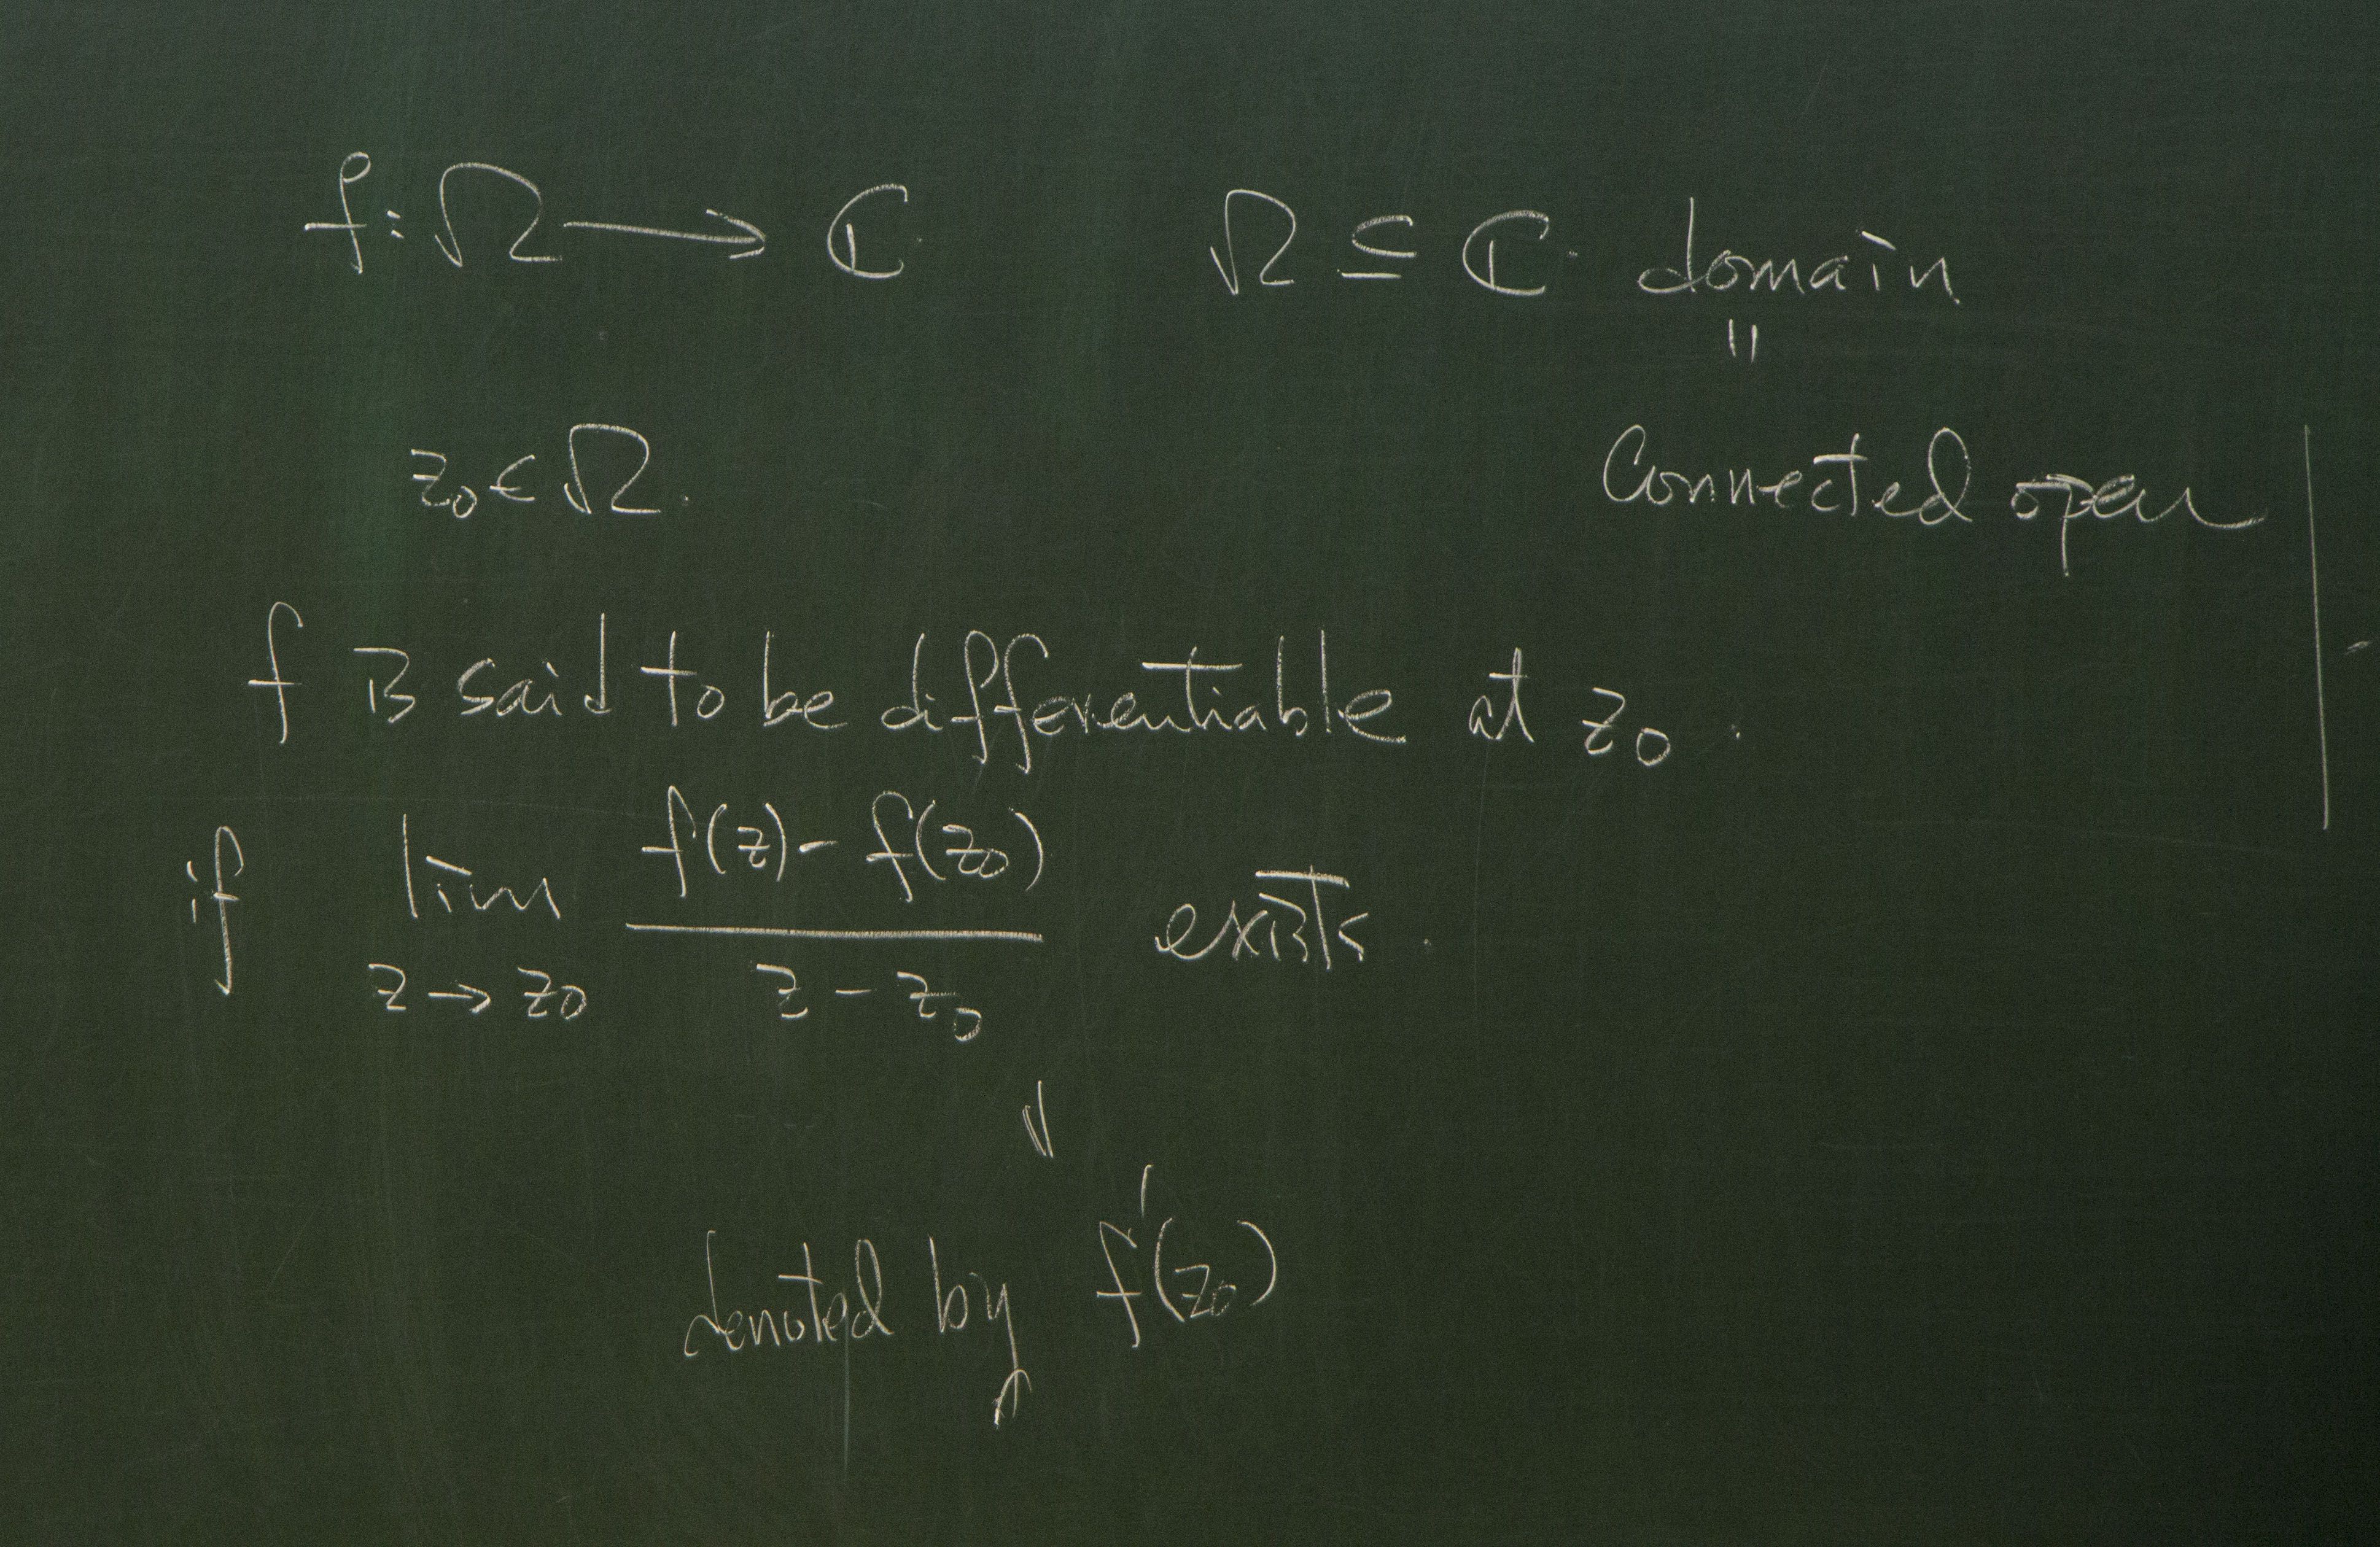 f: Ω → ℂ Ω ⊆ ℂ. domain
||
z₀ ∈ Ω. Connected open
f is said to be differentiable at z₀.
if lim_{z→z₀} (f(z) - f(z₀))/(z - z₀) exists.
||
denoted by f'(z₀)